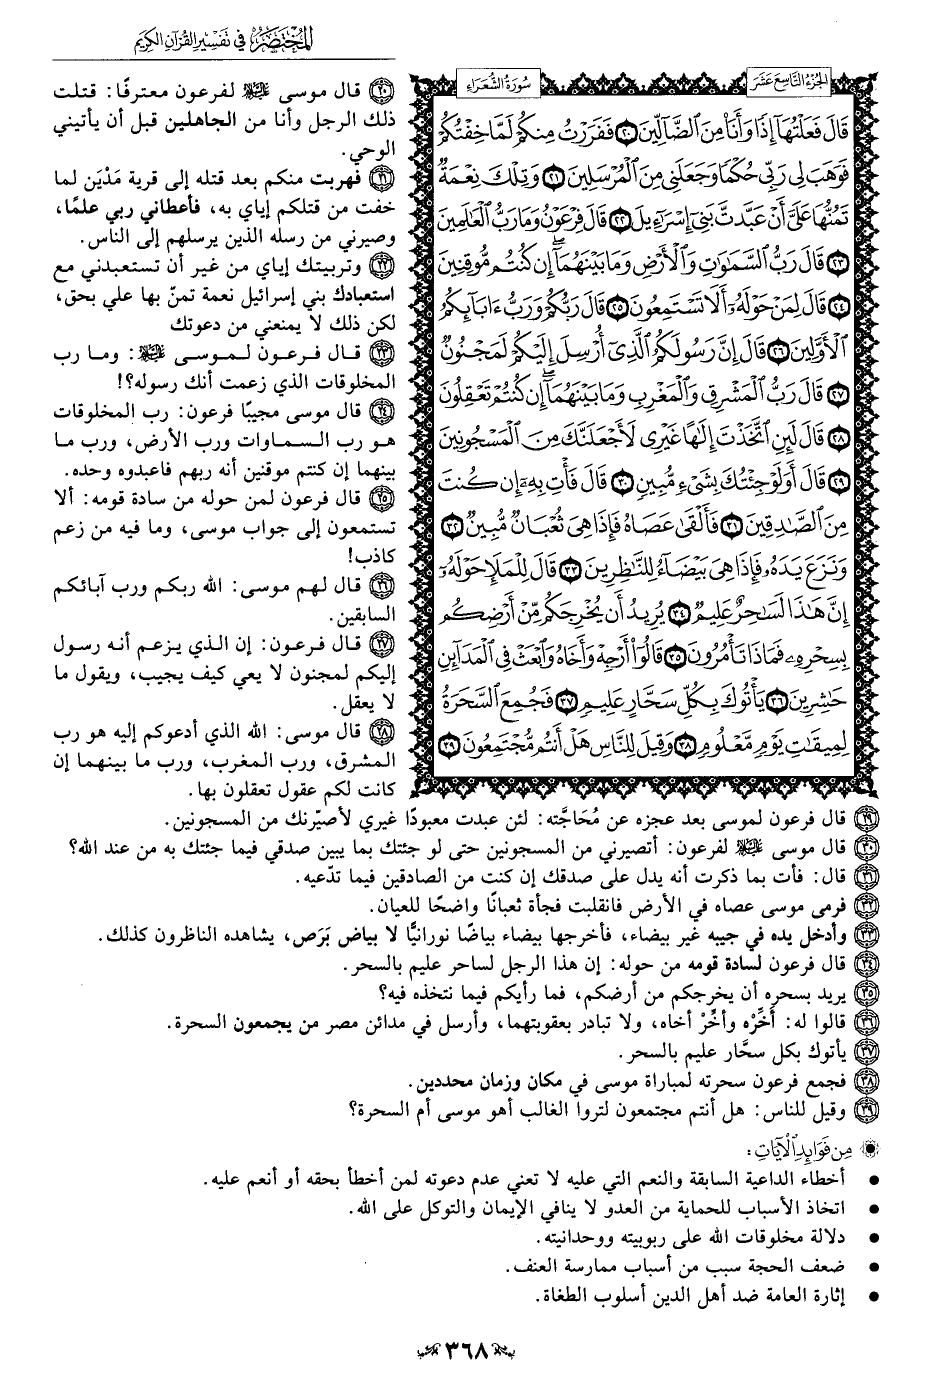 المختصر في تفسير القرآن الكريم
الجزء التاسع عشر
سورة الشعراء
قَالَ فَعَلْتُهَا إِذًا وَأَنَا۠ مِنَ ٱلضَّآلِّينَ ٢٠ فَفَرَرْتُ مِنكُمْ لَمَّا خِفْتُكُمْ
فَوَهَبَ لِى رَبِّى حُكْمًا وَجَعَلَنِى مِنَ ٱلْمُرْسَلِينَ ٢١ وَتِلْكَ نِعْمَةٌ
تَمُنُّهَا عَلَىَّ أَنْ عَبَّدتَّ بَنِىٓ إِسْرَٰٓءِيلَ ٢٢ قَالَ فِرْعَوْنُ وَمَا رَبُّ ٱلْعَٰلَمِينَ
٢٣ قَالَ رَبُّ ٱلسَّمَٰوَٰتِ وَٱلْأَرْضِ وَمَا بَيْنَهُمَآ ۖ إِن كُنتُم مُّوقِنِينَ
٢٤ قَالَ لِمَنْ حَوْلَهُۥٓ أَلَا تَسْتَمِعُونَ ٢٥ قَالَ رَبُّكُمْ وَرَبُّ ءَابَآئِكُمُ
ٱلْأَوَّلِينَ ٢٦ قَالَ إِنَّ رَسُولَكُمُ ٱلَّذِىٓ أُرْسِلَ إِلَيْكُمْ لَمَجْنُونٌ
٢٧ قَالَ رَبُّ ٱلْمَشْرِقِ وَٱلْمَغْرِبِ وَمَا بَيْنَهُمَآ ۖ إِن كُنتُمْ تَعْقِلُونَ
٢٨ قَالَ لَئِنِ ٱتَّخَذْتَ إِلَٰهًا غَيْرِى لَأَجْعَلَنَّكَ مِنَ ٱلْمَسْجُونِينَ
٢٩ قَالَ أَوَلَوْ جِئْتُكَ بِشَىْءٍ مُّبِينٍ ٣٠ قَالَ فَأْتِ بِهِۦٓ إِن كُنتَ
مِنَ ٱلصَّٰدِقِينَ ٣١ فَأَلْقَىٰ عَصَاهُ فَإِذَا هِىَ ثُعْبَانٌ مُّبِينٌ ٣٢
وَنَزَعَ يَدَهُۥ فَإِذَا هِىَ بَيْضَآءُ لِلنَّٰظِرِينَ ٣٣ قَالَ لِلْمَلَإِ حَوْلَهُۥٓ
إِنَّ هَٰذَا لَسَٰحِرٌ عَلِيمٌ ٣٤ يُرِيدُ أَن يُخْرِجَكُم مِّنْ أَرْضِكُم
بِسِحْرِهِۦ فَمَاذَا تَأْمُرُونَ ٣٥ قَالُوٓا۟ أَرْجِهْ وَأَخَاهُ وَٱبْعَثْ فِى ٱلْمَدَآئِنِ
حَٰشِرِينَ ٣٦ يَأْتُوكَ بِكُلِّ سَحَّارٍ عَلِيمٍ ٣٧ فَجُمِعَ ٱلسَّحَرَةُ
لِمِيقَٰتِ يَوْمٍ مَّعْلُومٍ ٣٨ وَقِيلَ لِلنَّاسِ هَلْ أَنتُم مُّجْتَمِعُونَ ٣٩
٢٠ قال موسى ﷺ لفرعون معترفًا: قتلت
ذلك الرجل وأنا من الجاهلين قبل أن يأتيني
الوحي.
٢١ فهربت منكم بعد قتله إلى قرية مَدْيَن لما
خفت من قتلكم إياي به، فأعطاني ربي علمًا،
وصيرني من رسله الذين يرسلهم إلى الناس.
٢٢ وتربيتك إياي من غير أن تستعبدني مع
استعبادك بني إسرائيل نعمة تمنّ بها علي بحق،
لكن ذلك لا يمنعني من دعوتك
٢٣ قال فرعون لموسى ﷺ: وما رب
المخلوقات الذي زعمت أنك رسوله؟!
٢٤ قال موسى مجيبًا فرعون: رب المخلوقات
هو رب السماوات ورب الأرض، ورب ما
بينهما إن كنتم موقنين أنه ربهم فاعبدوه وحده.
٢٥ قال فرعون لمن حوله من سادة قومه: ألا
تستمعون إلى جواب موسى، وما فيه من زعم
كاذب!
٢٦ قال لهم موسى: الله ربكم ورب آبائكم
السابقين.
٢٧ قال فرعون: إن الذي يزعم أنه رسول
إليكم لمجنون لا يعي كيف يجيب، ويقول ما
لا يعقل.
٢٨ قال موسى: الله الذي أدعوكم إليه هو رب
المشرق، ورب المغرب، ورب ما بينهما إن
كانت لكم عقول تعقلون بها.
٢٩ قال فرعون لموسى بعد عجزه عن مُحَاجَّته: لئن عبدت معبودًا غيري لأصيّرنك من المسجونين.
٣٠ قال موسى ﷺ لفرعون: أتصيرني من المسجونين حتى لو جئتك بما يبين صدقي فيما جئتك به من عند الله؟
٣١ قال: فأت بما ذكرت أنه يدل على صدقك إن كنت من الصادقين فيما تدّعيه.
٣٢ فرمى موسى عصاه في الأرض فانقلبت فجأة ثعبانًا واضحًا للعيان.
٣٣ وأدخل يده في جيبه غير بيضاء، فأخرجها بيضاء بياضًا نورانيًّا لا بياض بَرَص، يشاهده الناظرون كذلك.
٣٤ قال فرعون لسادة قومه من حوله: إن هذا الرجل لساحر عليم بالسحر.
٣٥ يريد بسحره أن يخرجكم من أرضكم، فما رأيكم فيما نتخذه فيه؟
٣٦ قالوا له: أَخِّرْه وأخِّرْ أخاه، ولا تبادر بعقوبتهما، وأرسل في مدائن مصر من يجمعون السحرة.
٣٧ يأتوك بكل سحَّار عليم بالسحر.
٣٨ فجمع فرعون سحرته لمباراة موسى في مكان وزمان محددين.
٣٩ وقيل للناس: هل أنتم مجتمعون لتروا الغالب أهو موسى أم السحرة؟
مِن فَوَائِدِ الآيَاتِ:
• أخطاء الداعية السابقة والنعم التي عليه لا تعني عدم دعوته لمن أخطأ بحقه أو أنعم عليه.
• اتخاذ الأسباب للحماية من العدو لا ينافي الإيمان والتوكل على الله.
• دلالة مخلوقات الله على ربوبيته ووحدانيته.
• ضعف الحجة سبب من أسباب ممارسة العنف.
• إثارة العامة ضد أهل الدين أسلوب الطغاة.
٣٦٨